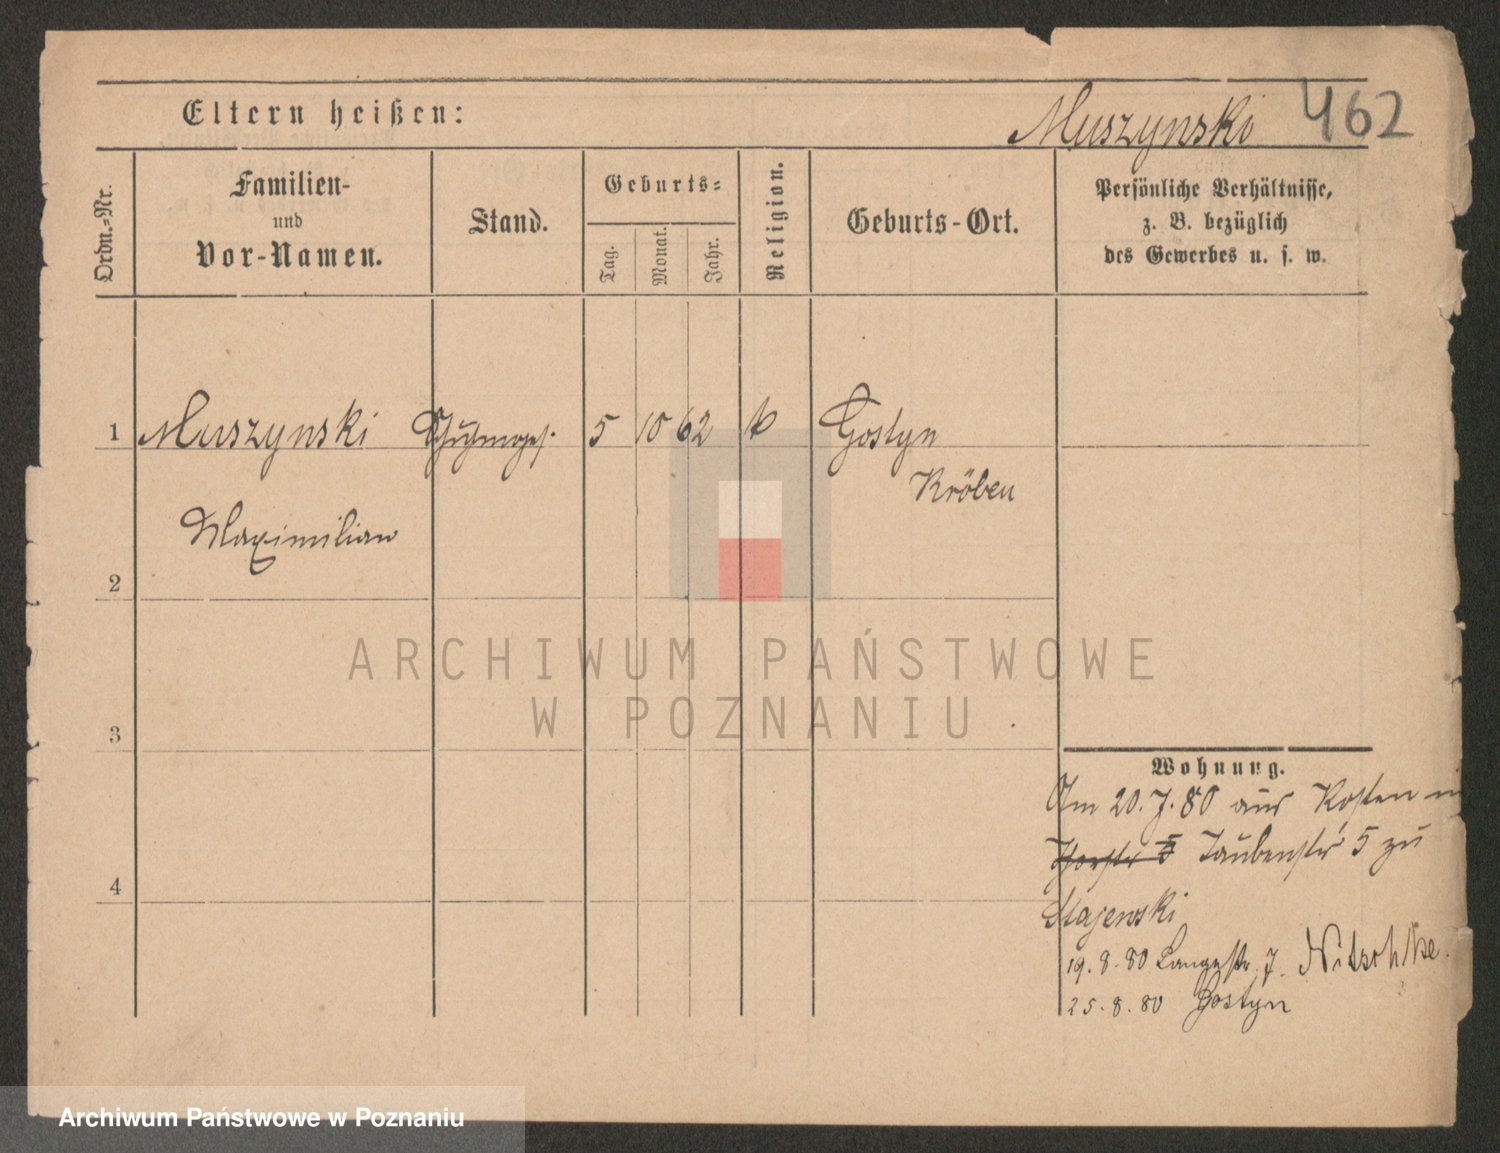 Eltern heißen:
Muszynski 462
Ordn.-Nr.
Familien-
und
Vor-Namen.
Stand.
Geburts-
Tag.
Monat.
Jahr.
Religion.
Geburts-Ort.
Persönliche Verhältnisse,
z. B. bezüglich
des Gewerbes u. s. w.
1 Muszynski Schuhmges. 5 10 62 k Gostyn
Kröben
Maximilian
2
3
4
Wohnung.
Am 20. 7. 80 aus Kosten
5 Taubenstr 5 zu
Majewski
19. 8. 80 Langestr. 7. Nitschke.
25. 8. 80 Gostyn
ARCHIWUM PAŃSTWOWE
W POZNANIU
Archiwum Państwowe w Poznaniu